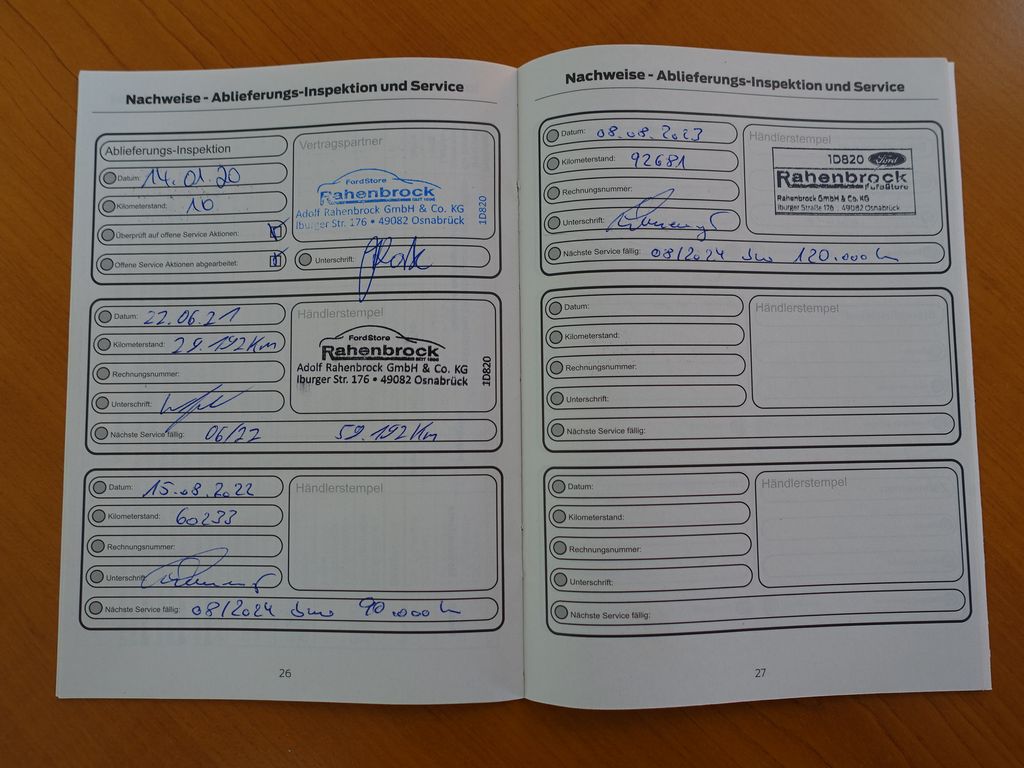 Nachweise - Ablieferungs-Inspektion und Service
Ablieferungs-Inspektion
Datum: 14.01.20
Kilometerstand: 10
Überprüft auf offene Service Aktionen:
Offene Service Aktionen abgearbeitet:
Vertragspartner
FordStore
Rahenbrock
Adolf Rahenbrock GmbH & Co. KG
Iburger Str. 176 • 49082 Osnabrück
1D820
Unterschrift:
Datum: 22.06.21
Kilometerstand: 29.192Km
Rechnungsnummer:
Unterschrift:
Nächste Service fällig: 06/22 59.192Km
Händlerstempel
FordStore
Rahenbrock
SEIT 1896
Adolf Rahenbrock GmbH & Co. KG
Iburger Str. 176 • 49082 Osnabrück
1D820
Datum: 15.08.2022
Kilometerstand: 60233
Rechnungsnummer:
Unterschrift:
Nächste Service fällig: 08/2024 90.000
Händlerstempel
26
Nachweise - Ablieferungs-Inspektion und Service
Datum: 08.08.2023
Kilometerstand: 92681
Rechnungsnummer:
Unterschrift:
Nächste Service fällig: 08/2024 120.000
Händlerstempel
1D820 Ford
Rahenbrock
FordStore
Rahenbrock GmbH & Co. KG
Iburger Straße 176 . 49082 Osnabrück
Datum:
Kilometerstand:
Rechnungsnummer:
Unterschrift:
Nächste Service fällig:
Händlerstempel
Datum:
Kilometerstand:
Rechnungsnummer:
Unterschrift:
Nächste Service fällig:
Händlerstempel
27